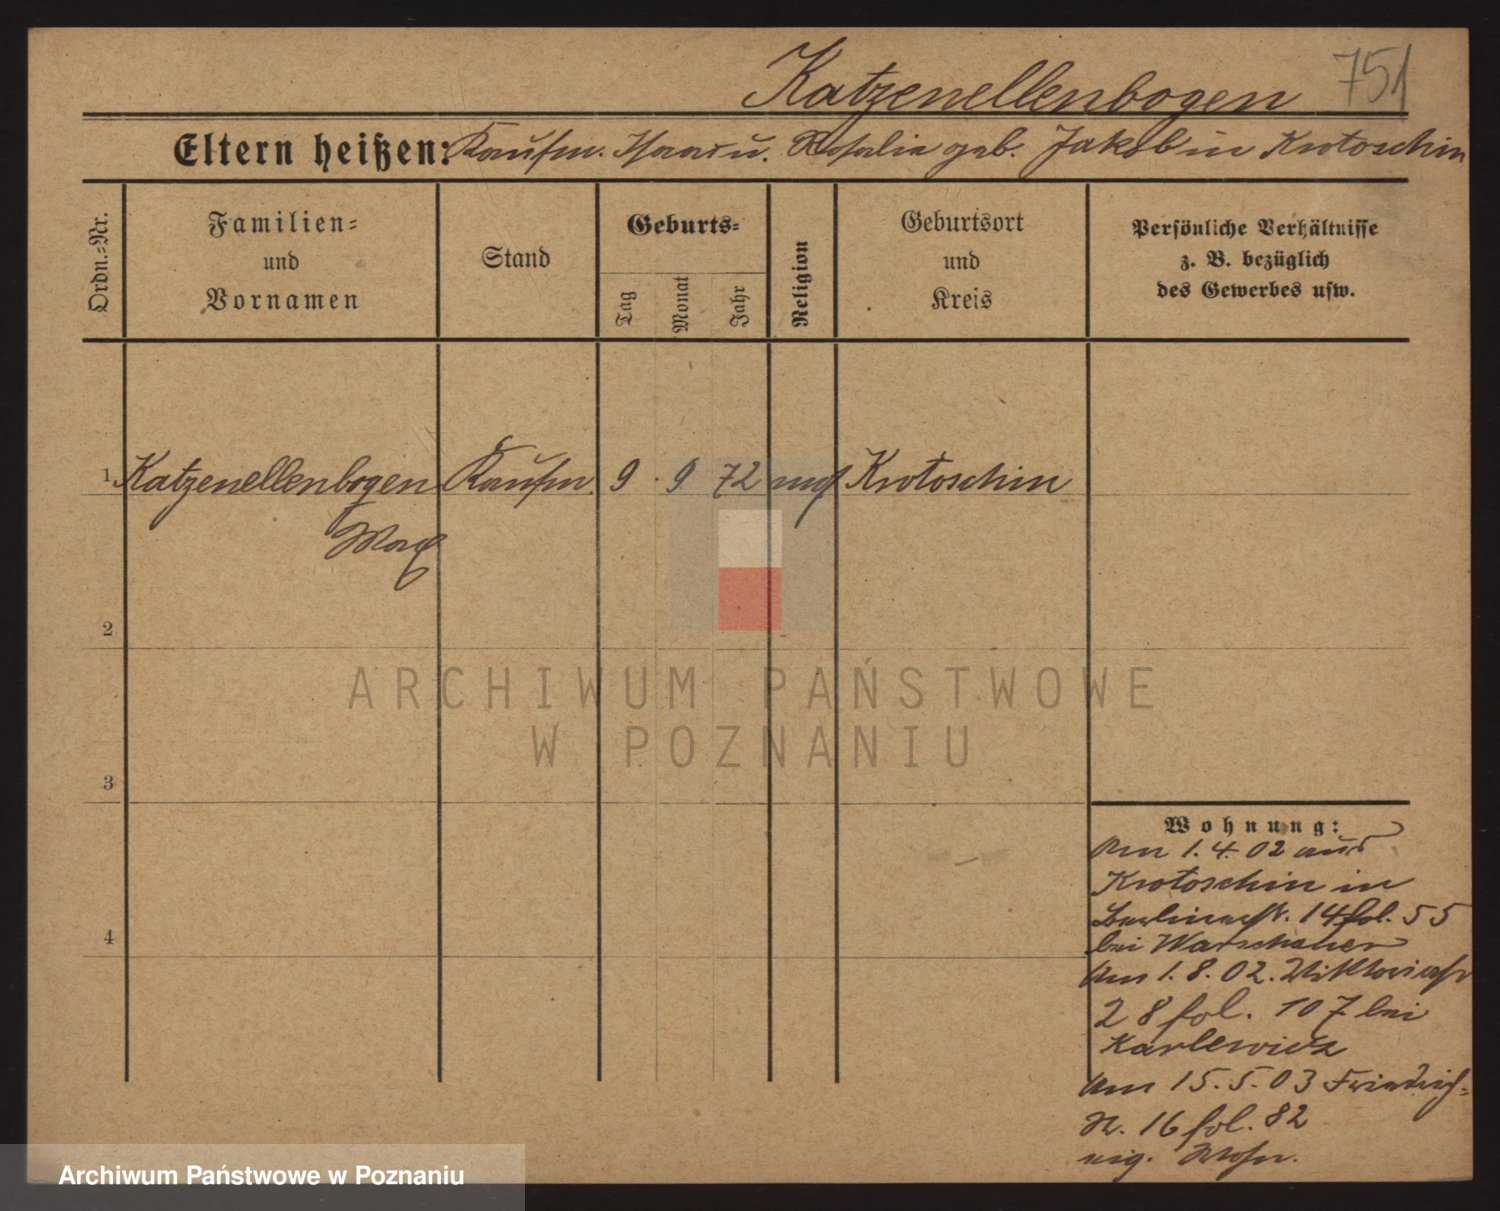 Katzenellenbogen 751
Eltern heißen: Kaufm. Isaac u. Rosalie geb. Jakob in Krotoschin
Ordn.-Nr.
Familien-
und
Vornamen
Stand
Geburts-
Tag
Monat
Jahr
Religion
Geburtsort
und
Kreis
Persönliche Verhältnisse
z. B. bezüglich
des Gewerbes usw.
1 Katzenellenbogen Kaufm. 9 9 72 mos Krotoschin
Max
2
3
4
Wohnung:
Am 1.4.02 aus
Krotoschin in
Berlinerstr. 14 fol. 55
bei Warschauer
Am 1.8.02. Viktoriastr
28 fol. 107 bei
Karlewicz
Am 15.5.03 Friedrich-
st. 16 fol. 82
eig. Wohn.
ARCHIWUM PAŃSTWOWE
W POZNANIU
Archiwum Państwowe w Poznaniu